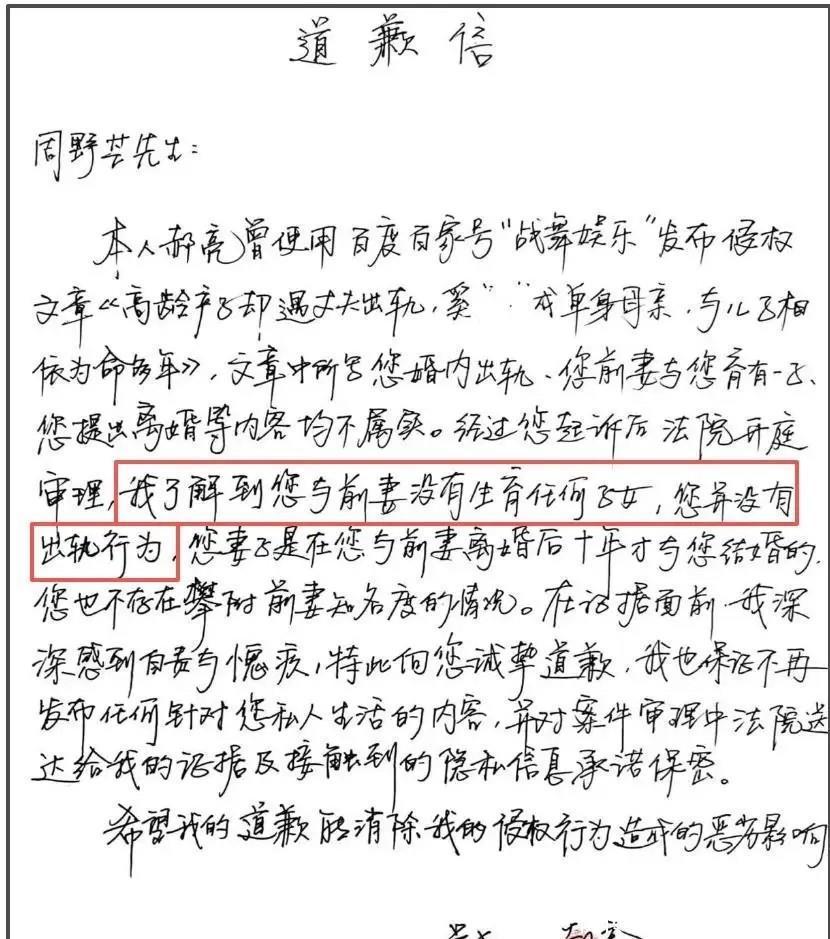 道歉信
周野芒先生:
本人郝亮曾使用百度百家号"战舞娱乐"发布侵权
文章《高龄产子却遇丈夫出轨,奚" "戎单身母亲,与儿子相
依为命多年》,文章中所写您婚内出轨、您前妻与您育有一子、
您提出离婚等内容均不属实。经过您起诉后法院开庭
审理,我了解到您与前妻没有生育任何子女,您并没有
出轨行为,您妻子是在您与前妻离婚后十年才与您结婚的,
您也不存在攀附前妻知名度的情况。在证据面前,我深
深感到自责与愧疚,特此向您诚挚道歉,我也保证不再
发布任何针对您私人生活的内容,并对案件审理中法院送
达给我的证据及接触到的隐私信息承诺保密。
希望我的道歉能消除我的侵权行为造成的恶劣影响